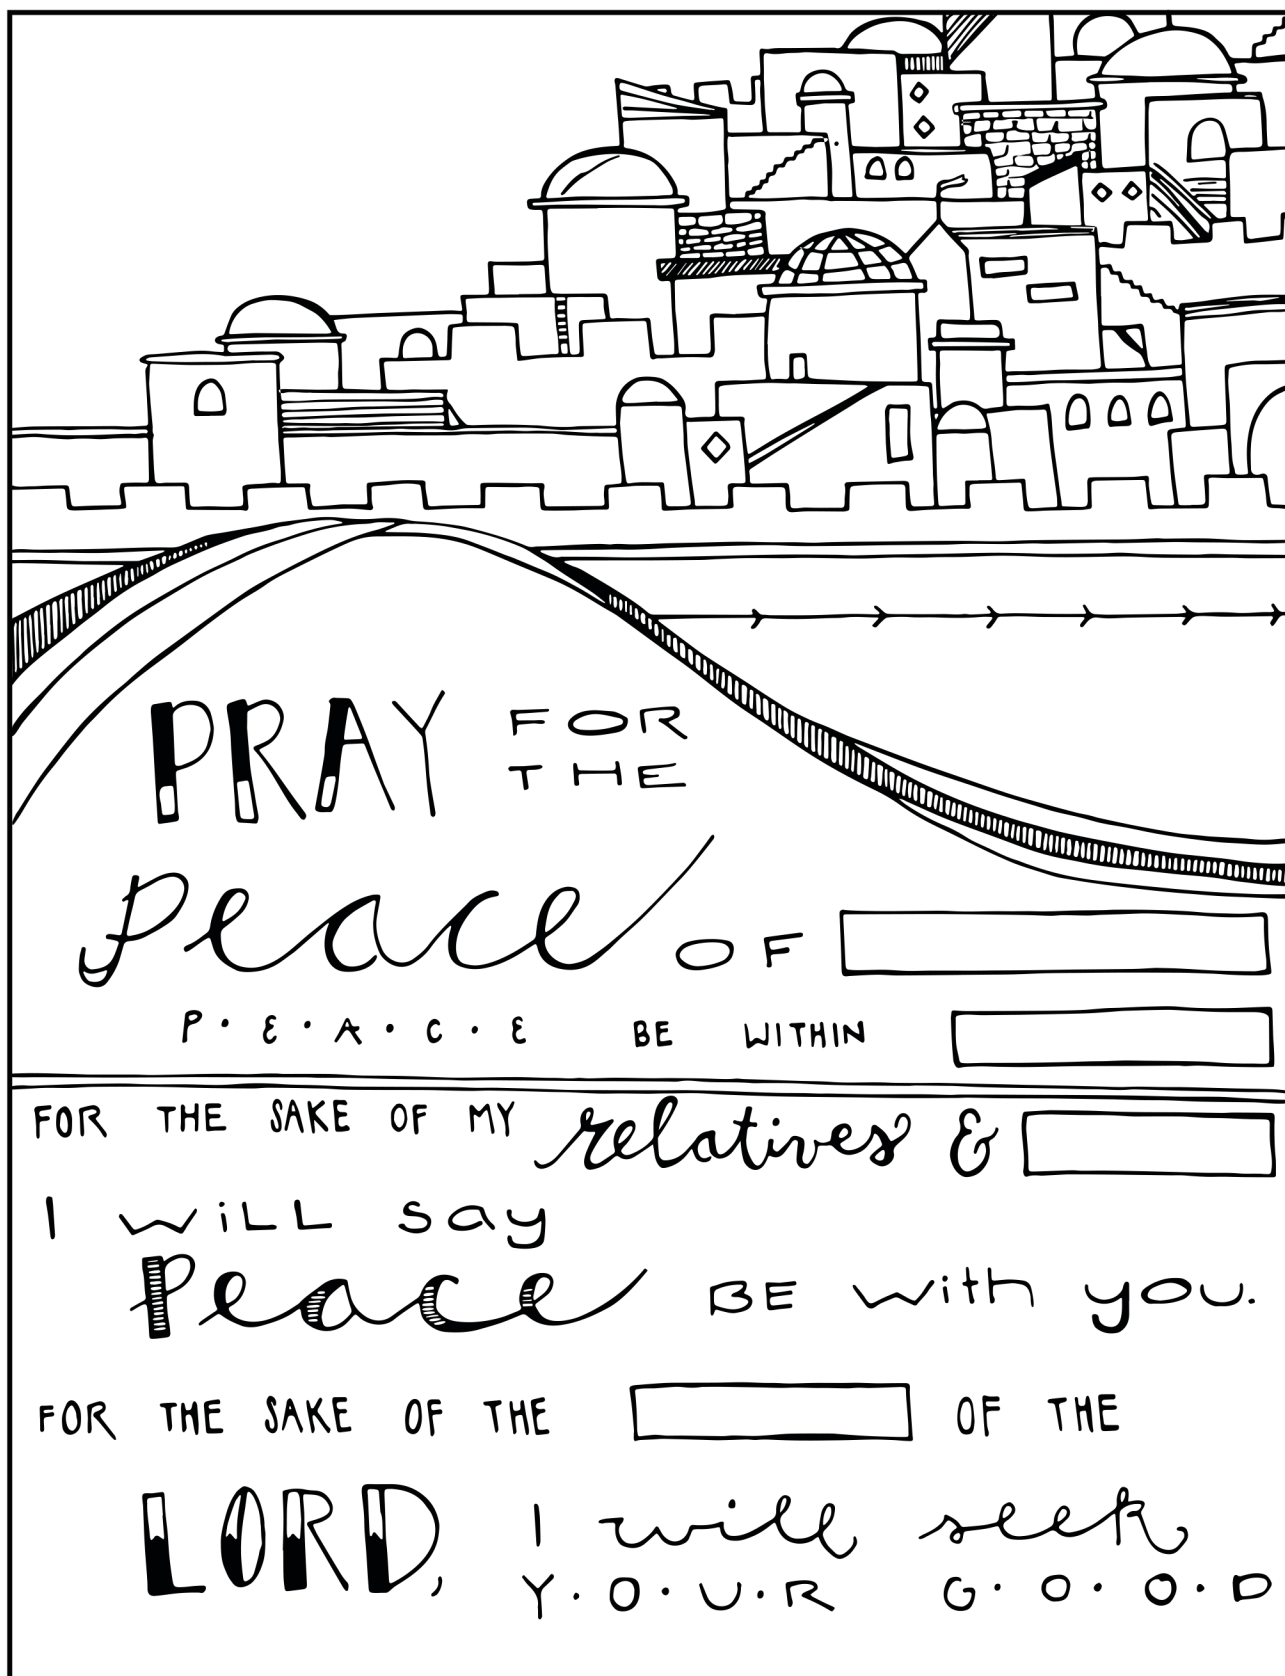 PRAY FOR THE
Peace OF
P·E·A·C·E BE WITHIN
FOR THE SAKE OF MY relatives &
I WiLL say
Peace BE with you.
FOR THE SAKE OF THE OF THE
LORD, I will seek
Y·O·U·R G·O·O·D